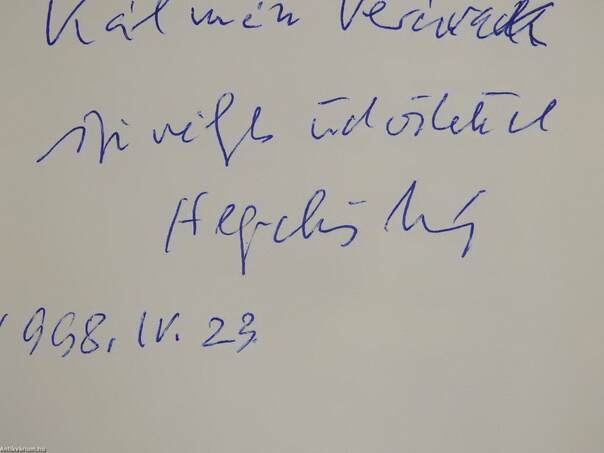 Kálmán Verának
szívélyes üdvözlettel
Hegedűs
1998. IV. 23
Antikvarium.hu